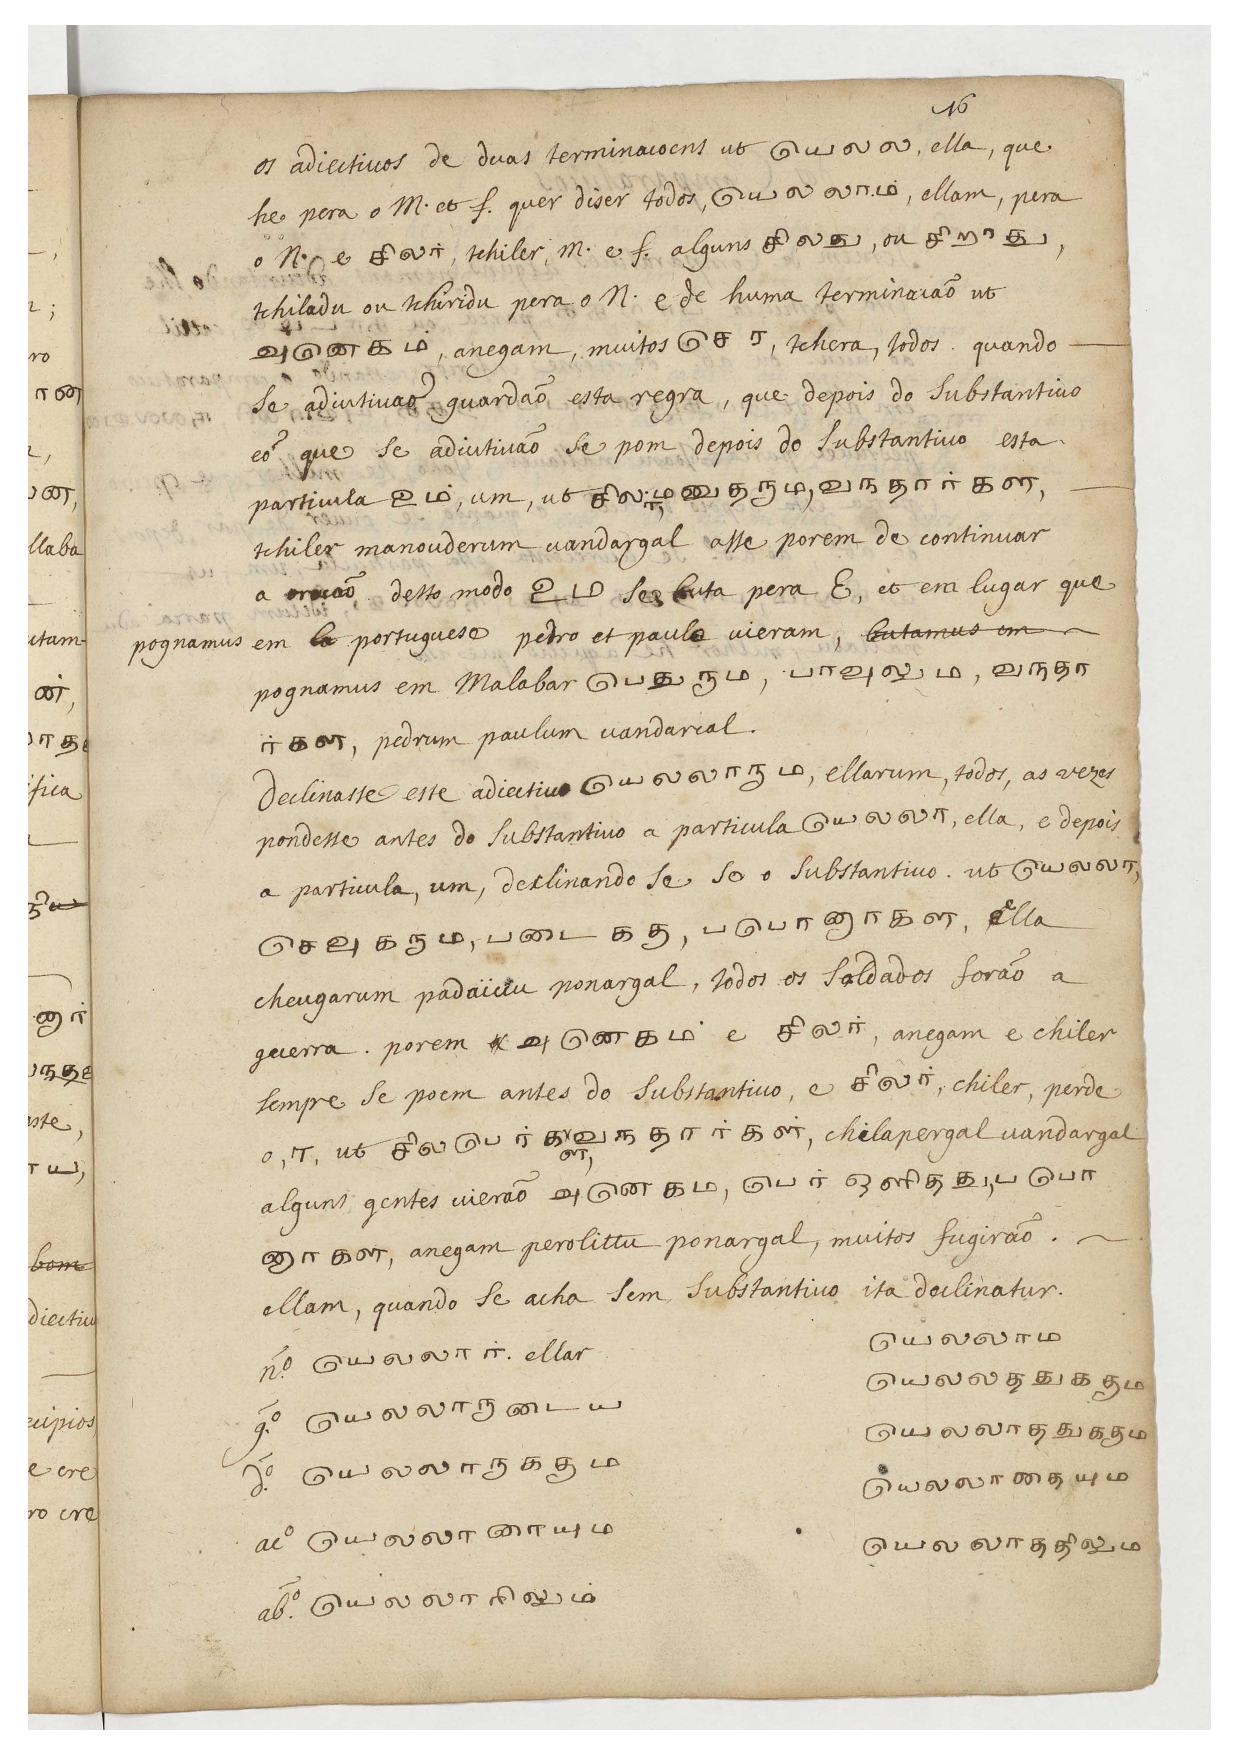 16
os adiectiuos de duas terminaioens ut யெலல, ella, que
he pera o M. et f. quer diser todos, யெலலாம், ellam, pera
o N. e சிலர், tchiler, M. e f. alguns சிலது, ou சிறாது,
tchiladu ou tchiridu pera o N. e de huma terminaião ut
அனெகம், anegam, muitos செர, tchera, todos. quando
se adiutiuão guardão esta regra, que depois do Substantiuo
eõ que se adiutiuão se pom depois do Substantiuo esta
particula உம், um, ut சிலர், மனுதரும, வநதார்கள,
tchiler manouderum uandargal asse porem de continuar
a oraião desto modo உம se buta pera E, et em lugar que
pognamus em la portuguese pedro et paulo uieram, butamus em
pognamus em Malabar பெதுரும, பாவுலும, வநதா
ர்கள, pedrum paulum uandarcal.
Declinasse este adiectiuo யெலலாரும, ellarum, todos, as vezes
pondesse antes do Substantiuo a particula யெலலா, ella, e depois
a particula, um, declinando se so o Substantiuo. ut யெலலா,
செவுகரும, படைகத, பபொனாகள, Ella
cheugarum padaiiuu ponargal, todos os Soldados forão a
guerra. porem அனெகம் e சிலர், anegam e chiler
sempre se poem antes do Substantiuo, e சிலர், chiler, perde
o, ர, ut சிலபெர்கள், வநதார்கள், chilapergal uandargal
alguns gentes uierão அனெகம, பெர் ஒளிதது, பபொ
னாகள, anegam perolittu ponargal, muitos fugirão.
ellam, quando se acha sem Substantiuo ita declinatur.
n.º யெலலார். ellar யெலலாம
g.º யெலலாருடைய யெலலததுகதும
d.º யெலலாருகதும யெலலாததுகதும
acº யெலலாரையும யெலலாதையும
ab.º யெலலாரிலும் யெலலாததிலும